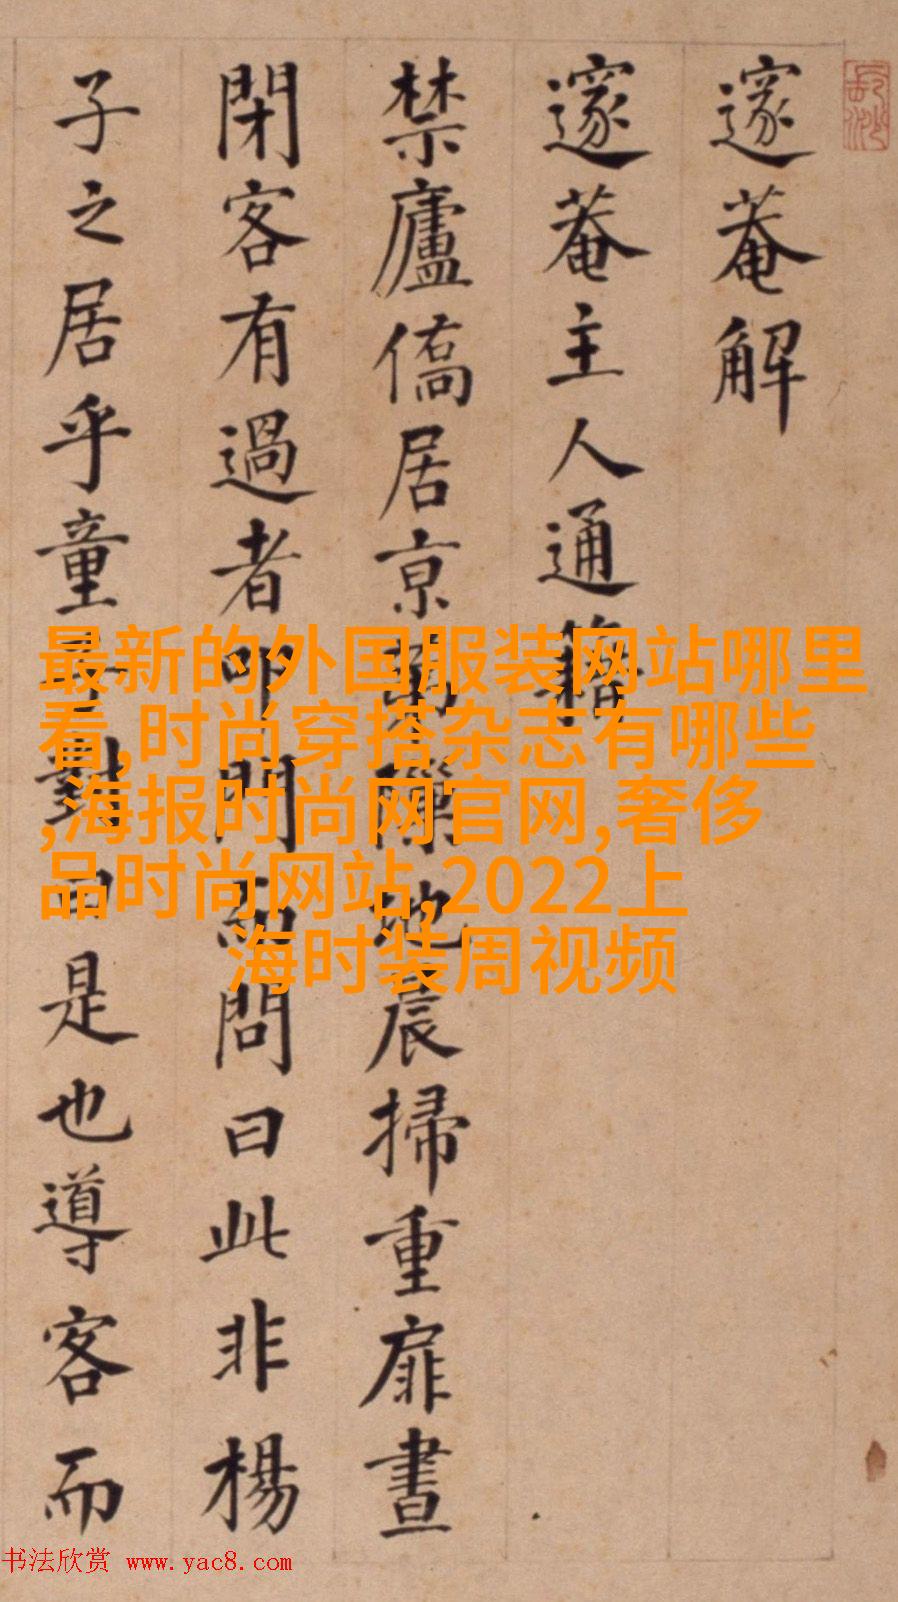 邃菴解
邃菴主人通籍
禁廬僑居京地晨掃重扉晝
閉客有過者叩門而問曰此非楊
子之居乎童子對曰是也導客而
最新的外国服装网站哪里
看,时尚穿搭杂志有哪些
,海报时尚网官网,奢侈
品时尚网站,2022上
海时装周视频
书法欣赏 www.yac8.com